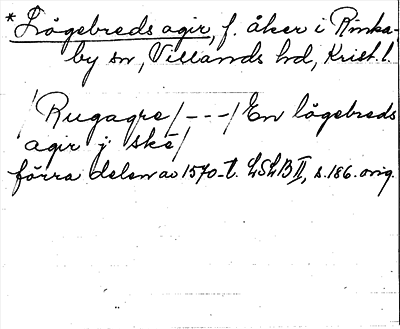 *Lågebreds agir, f. åker i Rinka-
by sn, Villands hd, Krist.l.
/Rugagre/---/En lågebreds
agir j skë/
förra delen av 1570-t. LSLB II, s.186. orig.